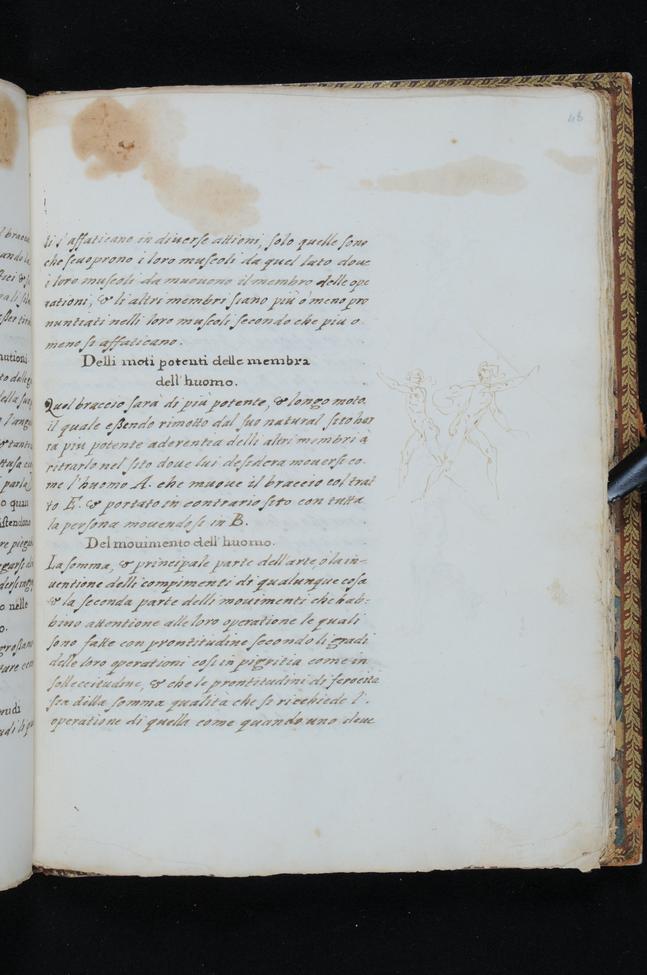 48
ti s'affaticano in diuerse attioni, solo quelle sono
che scuoprono i loro muscoli da quel lato doue
i loro muscoli da muoueno il membro delle ope
rationi, & li altri membri siano più ò meno pro
nuntiati nelli loro muscoli secondo che piu o
meno si affaticano.
Delli moti potenti delle membra
dell'huomo.
Quel braccio sarà di più potente, & longo moto.
il quale eßendo rimosso dal suo natural sito hau
ra piu potente aderentia delli altri membri a
ritrarlo nel sito doue lui desidera mouersi co-
me l'huomo A. che muoue il braccio col trat
to E. & portato in contrario sito con tutta
la persona mouendosi in B.
Del mouimento dell'huomo.
La somma, & principale parte dell'arte è la in-
uentione delli compimenti di qualunque cosa
& la seconda parte delli mouimenti che hab:
bino attentione alle loro operatione le quali
sono fatte con prontitudine secondo li gradi
delle loro operationi cosi in pigritia come in
sollecitudine, & che le prontitudini di ferocita
sia della somma qualità che si richiede l'.
operatione di quella come quando uno deue